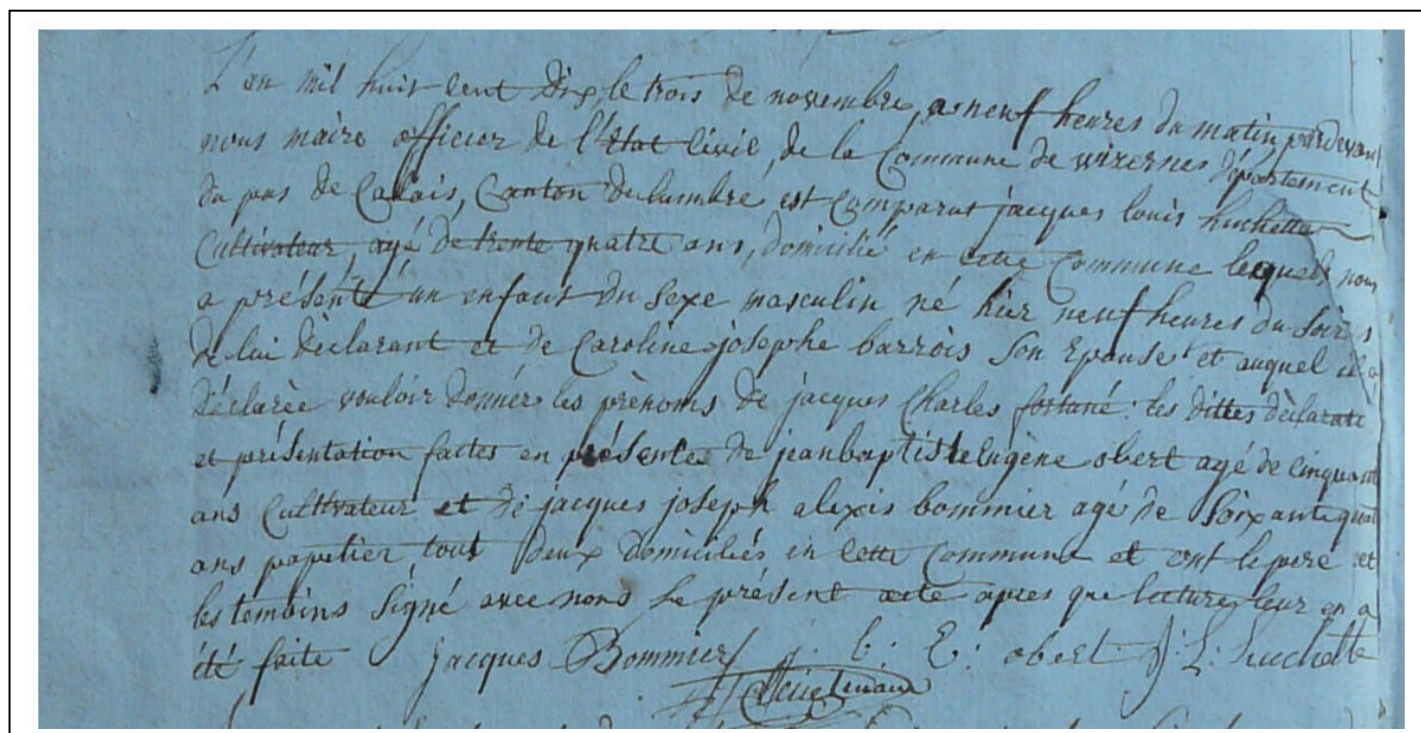 L'an mil huit cent dix, le trois de novembre, a neuf heures du matin pardevant
nous maire officier de l'Etat Civil, de la Commune de wizernes département
du pas de Calais, Canton de lumbré est comparut jacques louis huchette
Cultivateur, agé de trente quatre ans, domicilié en cette Commune lequel nous
a présenté un enfant du sexe masculin né hier neuf heures du soir
de lui déclarant et de Caroline josephe barrois son Epouse et auquel il a
déclarée vouloir donner les prènoms de jacques Charles fortuné. les dittes dèclarati
et présentation faites en présence de jean baptiste eugène obert agé de cinquant
ans Cultivateur et de jacques joseph alexis bommier agé de soixante quat
ans papetier, tout deux domiciliés en cette Commune et ont le pere et
les temoins signé avec nous le présent acte apres que lecture leur en a
été faite jacques Bommier j: b: E: obert J: L: huchette